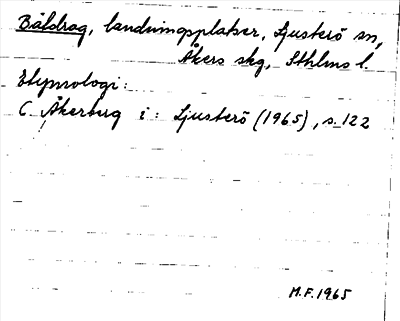 Båldrag, landningsplatser, Ljusterö sn,
Åkers skg, Sthlms l.
Etymologi:
C. Åkerberg i: Ljusterö (1965), s. 122
M.F. 1965